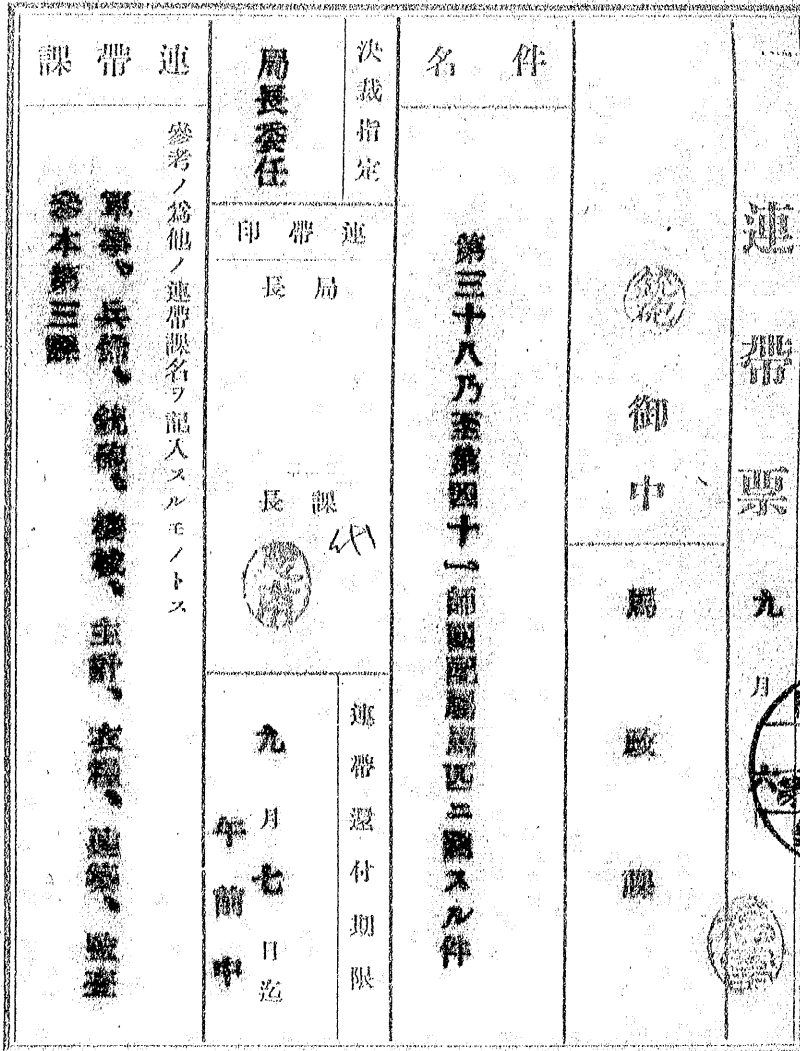 連帶票 九月
御中 馬政課
件名
第三十八乃至第四十一師團配屬馬匹ニ關スル件
決裁指定
局長委任
連帶印
局長
課長
代
連帶還付期限
九月七日迄
午前中
連帶課
參考ノ爲他ノ連帶課名ヲ記入スルモノトス
軍事、兵備、銃砲、機械、主計、衣糧、建築、監査
參本第三課